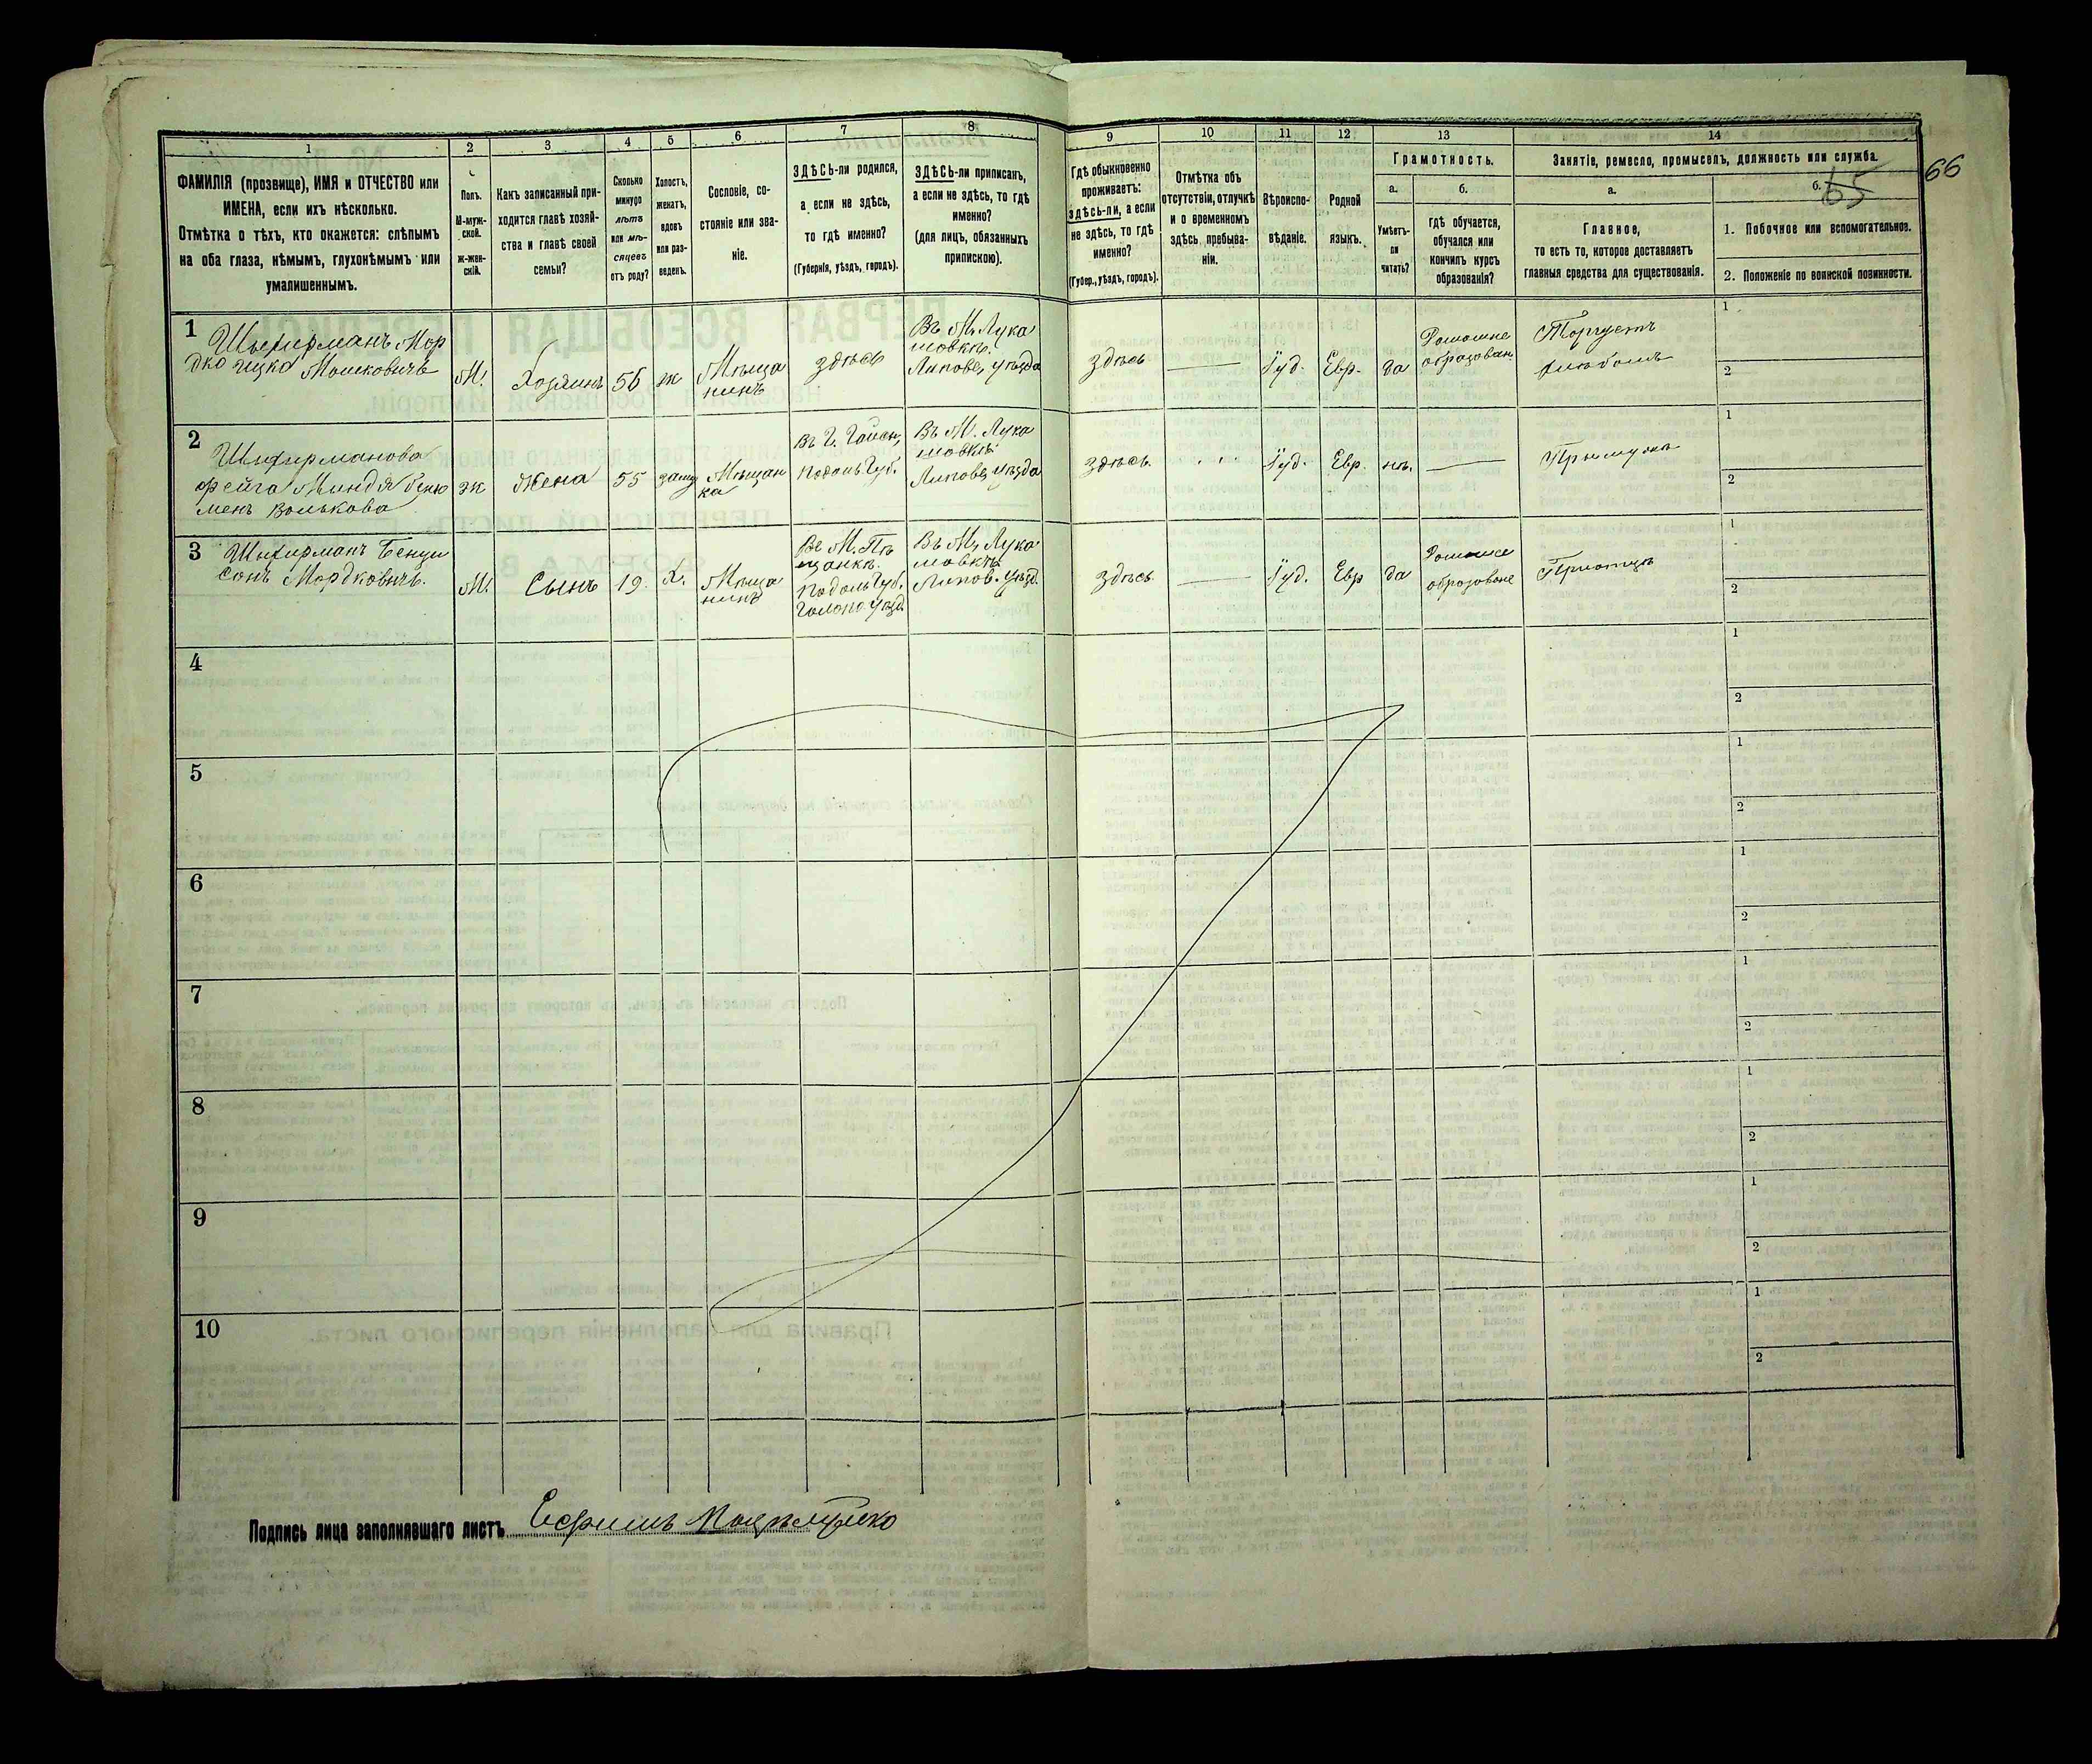 1 2 3 4 5 6 7 8 9 10 11 12 13 14
ФАМИЛІЯ (прозвище), ИМЯ и ОТЧЕСТВО или
ИМЕНА, если ихъ нѣсколько.
Отмѣтка о тѣхъ, кто окажется: слѣпымъ
на оба глаза, нѣмымъ, глухонѣмымъ или
умалишеннымъ.
Полъ.
М-муж-
ской.
Ж-жен-
скій.
Какъ записанный при-
ходится главѣ хозяй-
ства и главѣ своей
семьи?
Сколько
минуло
лѣтъ
или мѣ-
сяцевъ
отъ роду?
Холостъ,
женатъ,
вдовъ
или раз-
веденъ.
Сословіе, со-
стояніе или зва-
ніе.
ЗДѢСЬ-ли родился,
а если не здѣсь,
то гдѣ именно?
(Губернія, уѣздъ, городъ).
ЗДѢСЬ-ли приписанъ,
а если не здѣсь, то гдѣ
именно?
(для лицъ, обязанныхъ
припискою).
Гдѣ обыкновенно
проживаетъ:
здѣсь-ли, а если
не здѣсь, то гдѣ
именно?
(Губер., уѣздъ, городъ).
Отмѣтка объ
отсутствіи, отлучкѣ
и о временномъ
здѣсь пребыва-
ніи.
Вѣроиспо-
вѣданіе.
Родной
языкъ.
Грамотность.
а.
Умѣетъ-
ли
читать?
б.
гдѣ обучается,
обучался или
кончилъ курсъ
образованія?
Занятіе, ремесло, промыселъ, должность или служба.
а.
Главное,
то есть то, которое доставляетъ
главныя средства для существованія.
б.
1. Побочное или вспомогательное.
2. Положеніе по воинской повинности.
65
66
1
Шыфирманъ Мор
дко Ицко Мошковичъ
М.
Хозяинъ
56
ж
Мѣща
нинъ
здѣсь
Въ М. Лука
шовкѣ.
Липовец. уѣзда
здѣсь
Іуд.
Евр.
да
Домашне
образован
Торгуетъ
1
2
2
Шифирманова
Фейга Миндя
Волькова
ж
Жена
55
заму
Мѣщан
ка
Въ Г. Гайсн,
Подоль Губ.
Въ М. Лука
шовкѣ
Липовец уѣзда
здѣсь.
Іуд.
Евр.
нѣ.
При мужѣ
1
2
3
Шифирманъ Бенци
сонъ Мордковичъ.
М.
Сынъ
19.
Х.
Мѣща
нинъ
Въ М.
Подоль Губ.
Въ М. Лука
шовкѣ
Липов. уѣзд.
здѣсь
Іуд.
Евр
да
Домашне
образоване
При отцѣ
1
2
4
1
2
5
1
2
6
1
2
7
1
2
8
1
2
9
1
2
10
1
2
Подпись лица заполнявшаго листъ